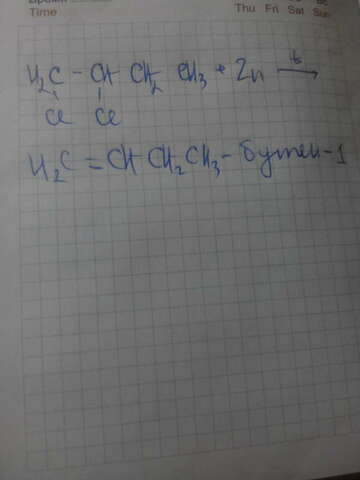 Time Thu Fri Sat Sun
H₂C - CH CH₂ CH₃ + Zn →
Cl Cl
H₂C = CH CH₂CH₃ - бутен-1